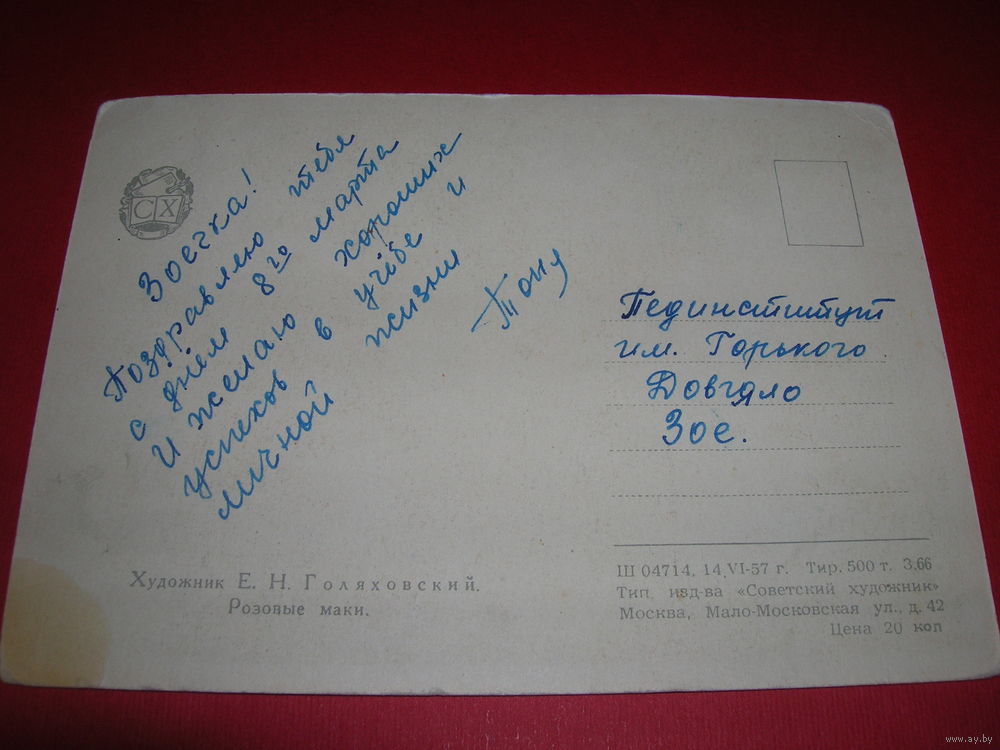 СХ
Зоечка!
Поздравляю тебя
с днём 8го марта
и желаю хороших
успехов в учёбе и
личной жизни
Тоня
Пединститут
им. Горького
Довгяло
Зое.
Художник Е. Н. Голяховский.
Розовые маки.
Ш 04714. 14.VI-57 г. Тир. 500 т. З.66
Тип. изд-ва «Советский художник»
Москва, Мало-Московская ул., д. 42
Цена 20 коп
www.ay.by